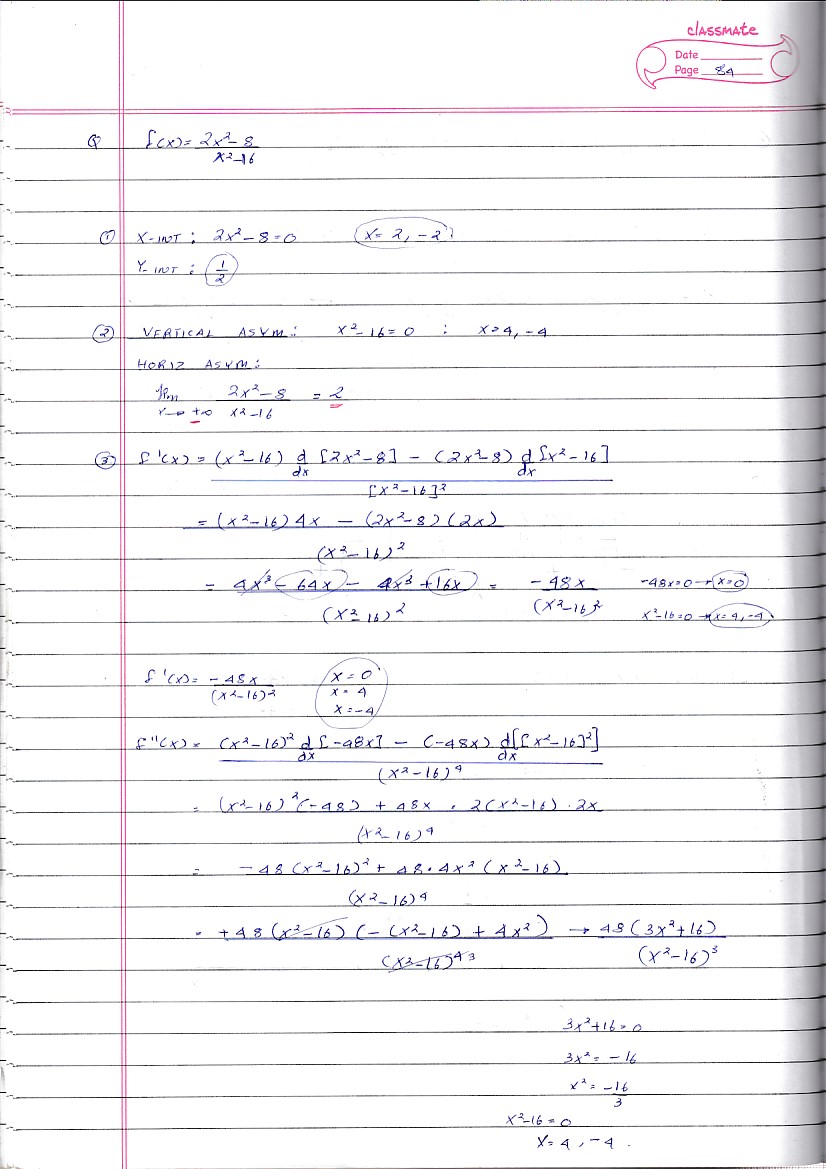 classmate
Date
Page 84
Q f(x) = 2x²-8
x²-16
① X-INT : 2x²-8=0 x= 2, -2
Y-INT : 1/2
② VERTICAL ASYM: x²-16=0 : x=4, -4
HORIZ ASYM:
lim 2x²-8 = 2
x→±∞ x²-16
③ f'(x) = (x²-16) d/dx [2x²-8] - (2x²-8) d/dx [x²-16]
[x²-16]²
= (x²-16) 4x - (2x²-8)(2x)
(x²-16)²
= 4x³ - 64x - 4x³ + 16x = -48x -48x=0 → x=0
(x²-16)² (x²-16)² x²-16=0 → x=4, -4
f'(x) = -48x x=0
(x²-16)² x=4
x=-4
f''(x) = (x²-16)² d/dx [-48x] - (-48x) d/dx [[x²-16]²]
(x²-16)⁴
= (x²-16)²(-48) + 48x · 2(x²-16) · 2x
(x²-16)⁴
= -48(x²-16)² + 48·4x²(x²-16)
(x²-16)⁴
= +48(x²-16)(-(x²-16) + 4x²) → 48(3x²+16)
(x²-16)⁴ ³ (x²-16)³
3x²+16=0
3x² = -16
x² = -16
3
x²-16=0
x=4, -4.